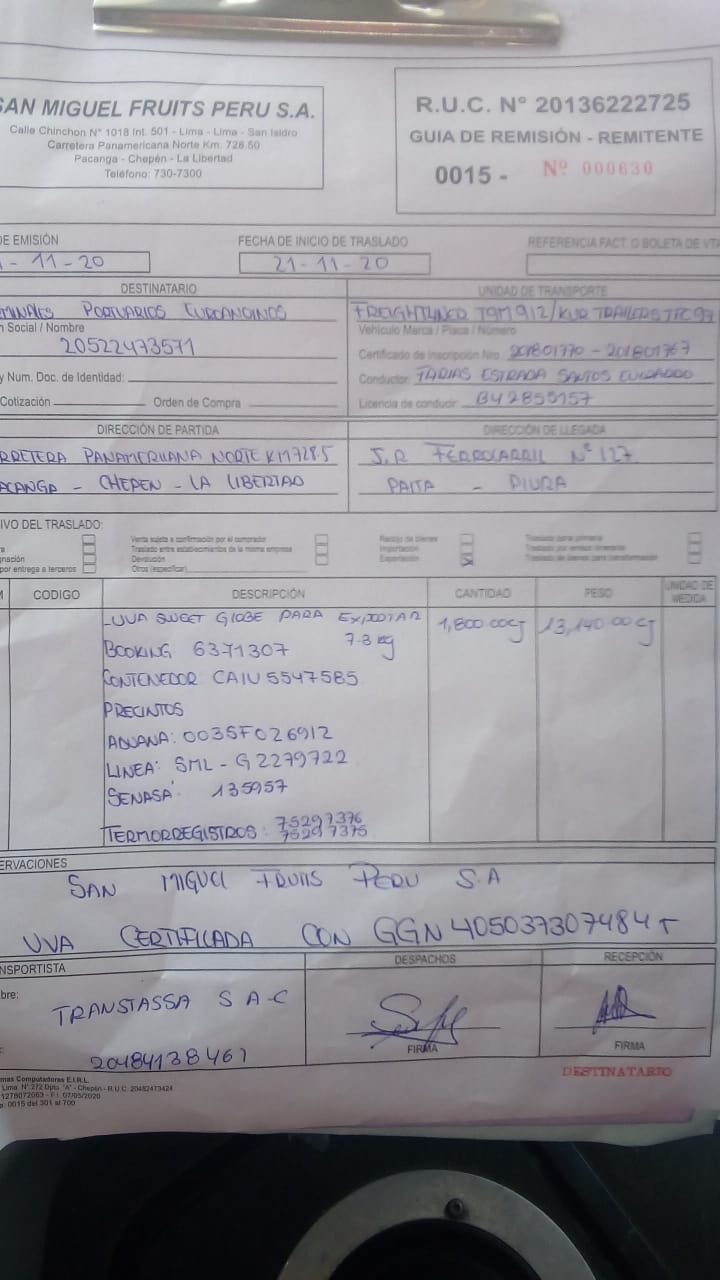 SAN MIGUEL FRUITS PERU S.A.
Calle Chinchon N° 1018 Int. 501 - Lima - Lima - San Isidro
Carretera Panamericana Norte Km. 728.50
Pacanga - Chepén - La Libertad
Teléfono: 730-7300
R.U.C. N° 20136222725
GUIA DE REMISIÓN - REMITENTE
0015 - Nº 000630
DE EMISIÓN
FECHA DE INICIO DE TRASLADO
REFERENCIA FACT. O BOLETA DE VTA
- 11 - 20
21-11-20
DESTINATARIO
UNIDAD DE TRANSPORTE
MINALES PORTUARIOS EUROANDINOS
FREIGHTLINER T9M912/KUR TRAILERS TFC97
n Social / Nombre
Vehículo Marca / Placa / Número
20522473571
Certificado de Inscripción Nro. 201801770 - 201801767
y Num. Doc. de Identidad:
Conductor: FARIAS ESTRADA SANTOS
Cotización Orden de Compra
Licencia de conducir: B42855157
DIRECCIÓN DE PARTIDA
DIRECCIÓN DE LLEGADA
RRETERA PANAMERICANA NORTE KM728.5
J.R FERROCARRIL N° 127
ACANGA - CHEPEN - LA LIBERTAD
PAITA - PIURA
IVO DEL TRASLADO:
Venta sujeta a confirmación por el comprador
Recojo de bienes
Traslado entre establecimientos de la misma empresa
Importación
gnación
Devolución
Exportación
Traslado de bienes para transformación
por entrega a terceros
Otros (especificar)
M CODIGO DESCRIPCIÓN CANTIDAD PESO UNIDAD DE MEDIDA
UVA SWEET GLOBE PARA EXPORTAR
1,800.00CJ 13,140.00
BOOKING 6371307 7.3 kg
CONTENEDOR CAIU 5547585
PRECINTOS
ADUANA: 003SF026912
LINEA: SML - G2279722
SENASA: 135957
TERMORREGISTROS: 75297376
75297375
ERVACIONES
SAN MIGUEL FRUITS PERU S.A
UVA CERTIFICADA CON GGN
NSPORTISTA
DESPACHOS
RECEPCIÓN
bre:
TRANSTASSA S A-C
20484138461
FIRMA
FIRMA
DESTINATARIO
mas Computadoras E.I.R.L.
Lima N° 272 Dpto. "A" - Chepén - R.U.C. 20482473424
1278072063 - F.I. 07/05/2020
: 0015 del 301 al 700